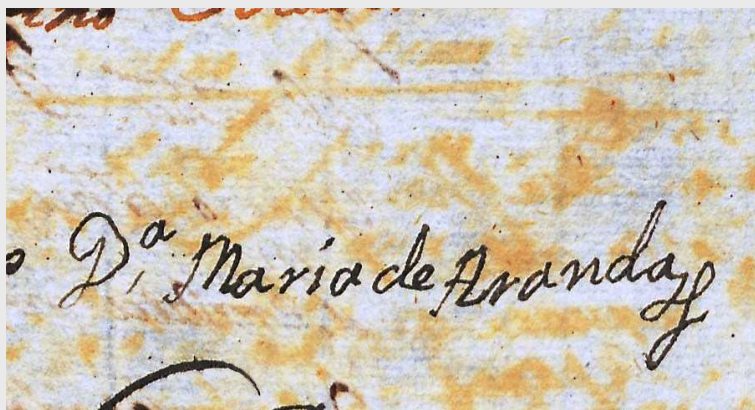 D.ª Maria de Aranda